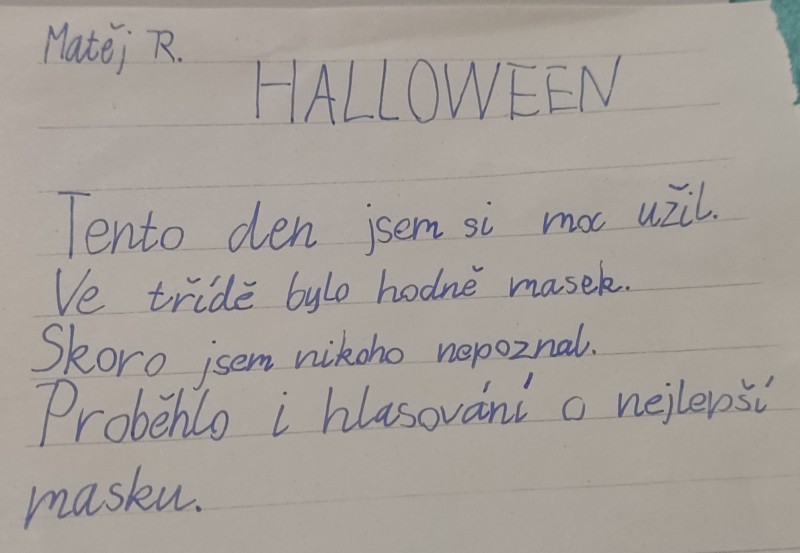 Matěj R.
HALLOWEEN
Tento den jsem si moc užil.
Ve třídě bylo hodně masek.
Skoro jsem nikoho nepoznal.
Proběhlo i hlasování o nejlepší
masku.